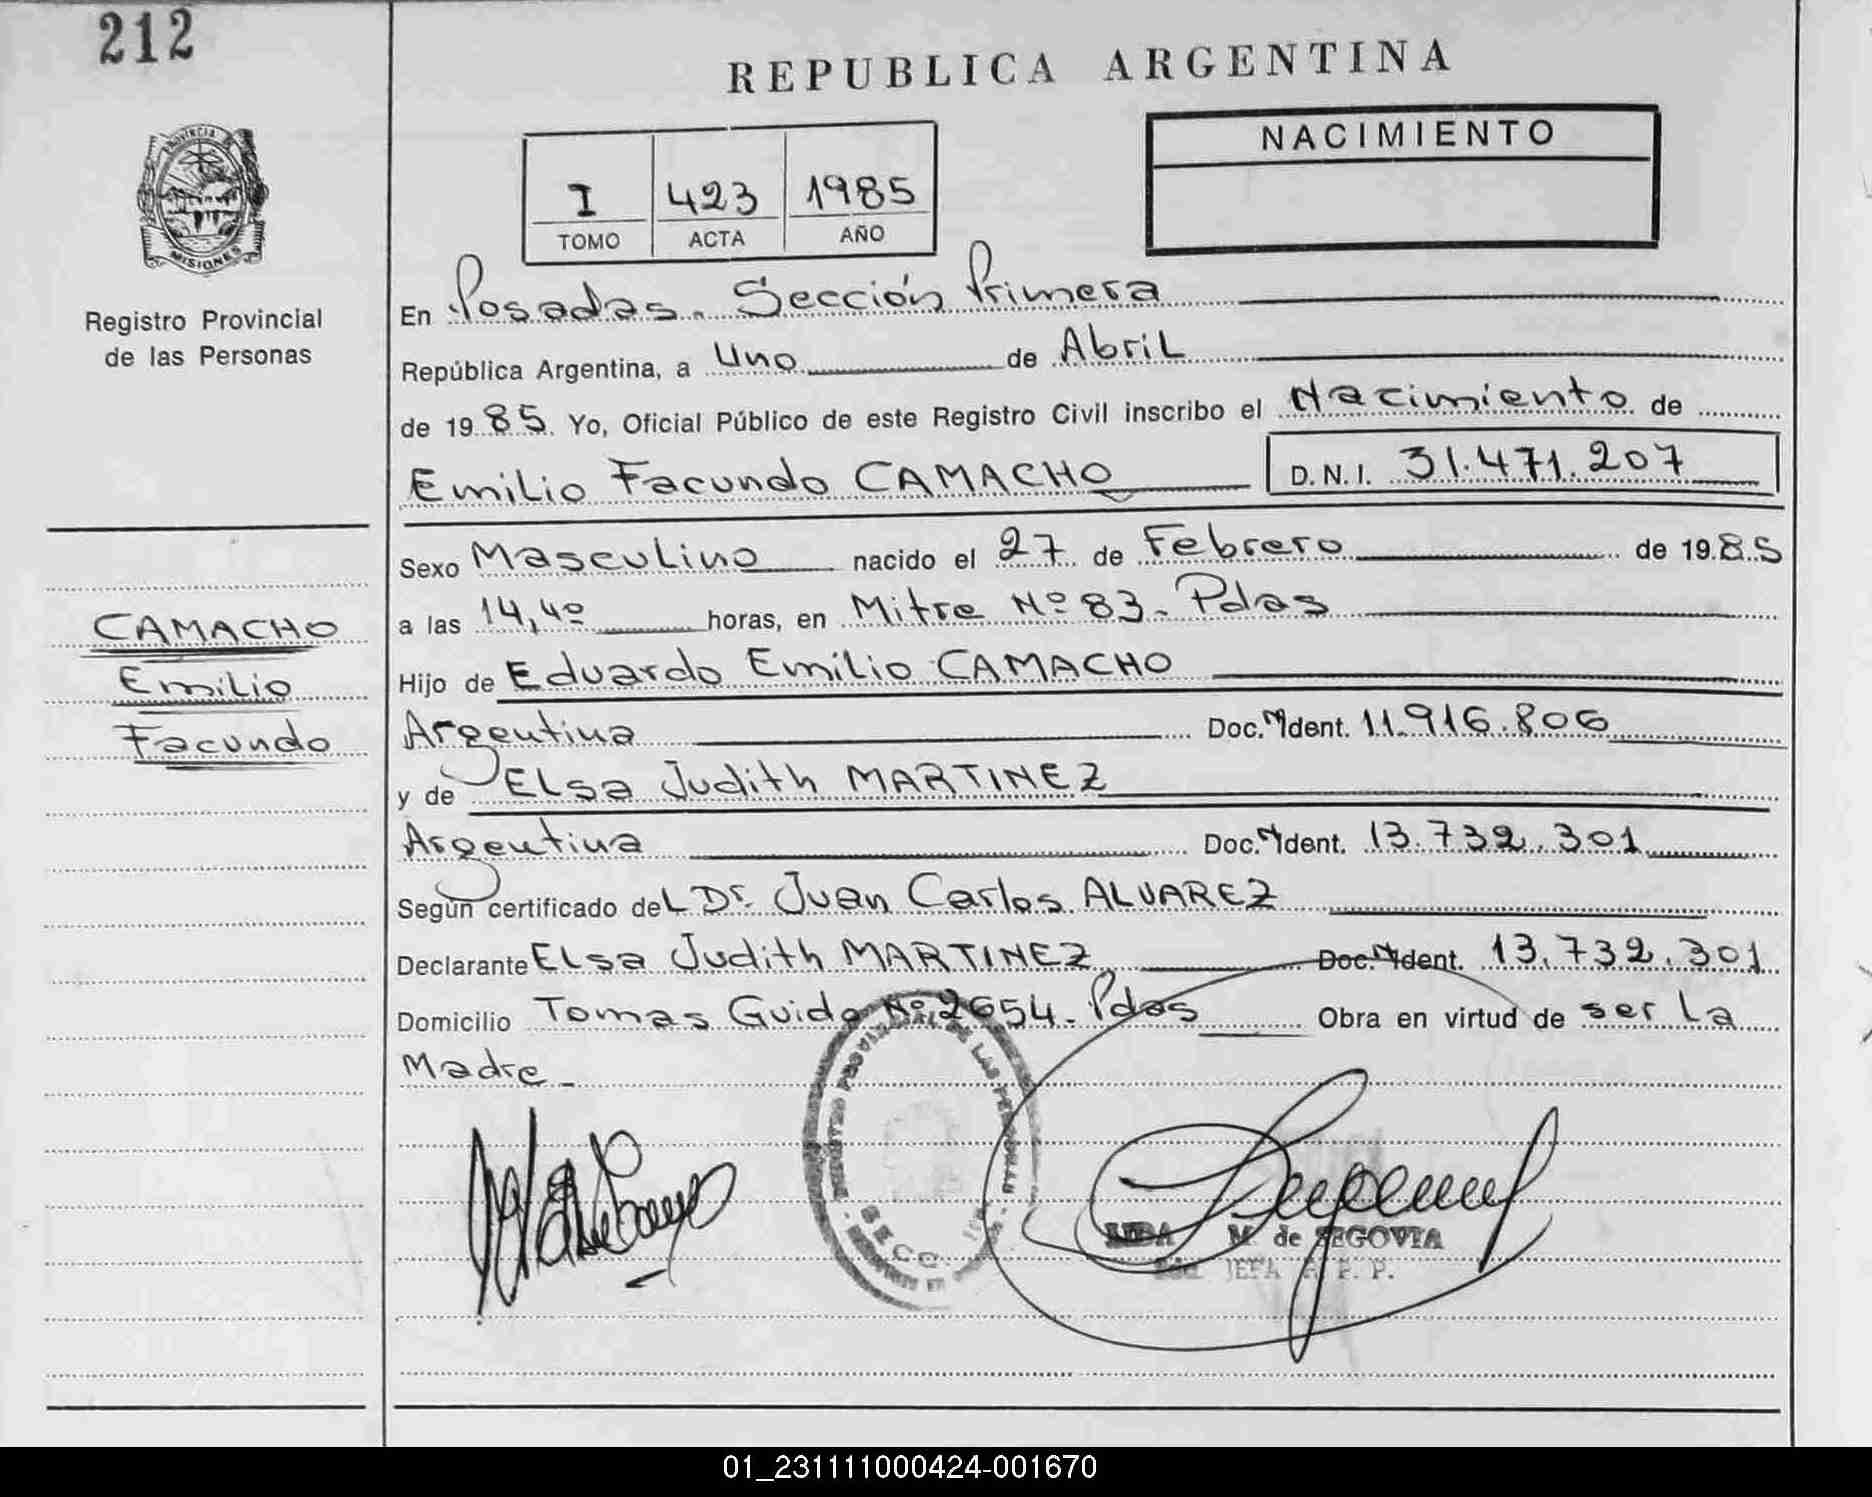 212
REPUBLICA ARGENTINA
PROVINCIA DE
MISIONES
Registro Provincial
de las Personas
I 423 1985
TOMO ACTA AÑO
NACIMIENTO
En Posadas. Sección Primera
República Argentina, a Uno de Abril
de 1985 Yo, Oficial Público de este Registro Civil inscribo el Nacimiento de
Emilio Facundo CAMACHO D.N.I. 31.471.207
Sexo Masculino nacido el 27 de Febrero de 1985
a las 14,40 horas, en Mitre Nº 83. Pdas
Hijo de Eduardo Emilio CAMACHO
Argentina Doc. Ident. 11.916.806
y de Elsa Judith MARTINEZ
Argentina Doc. Ident. 13.732.301
Según certificado del Dr. Juan Carlos ALVAREZ
Declarante Elsa Judith MARTINEZ Doc. Ident. 13.732.301
Domicilio Tomas Guido Nº 2654. Pdas Obra en virtud de ser la
Madre
CAMACHO
Emilio
Facundo
REGISTRO PROVINCIAL DE LAS PERSONAS
SECC.
M. de SEGOVIA
JEFA R. P. P.
01_231111000424-001670